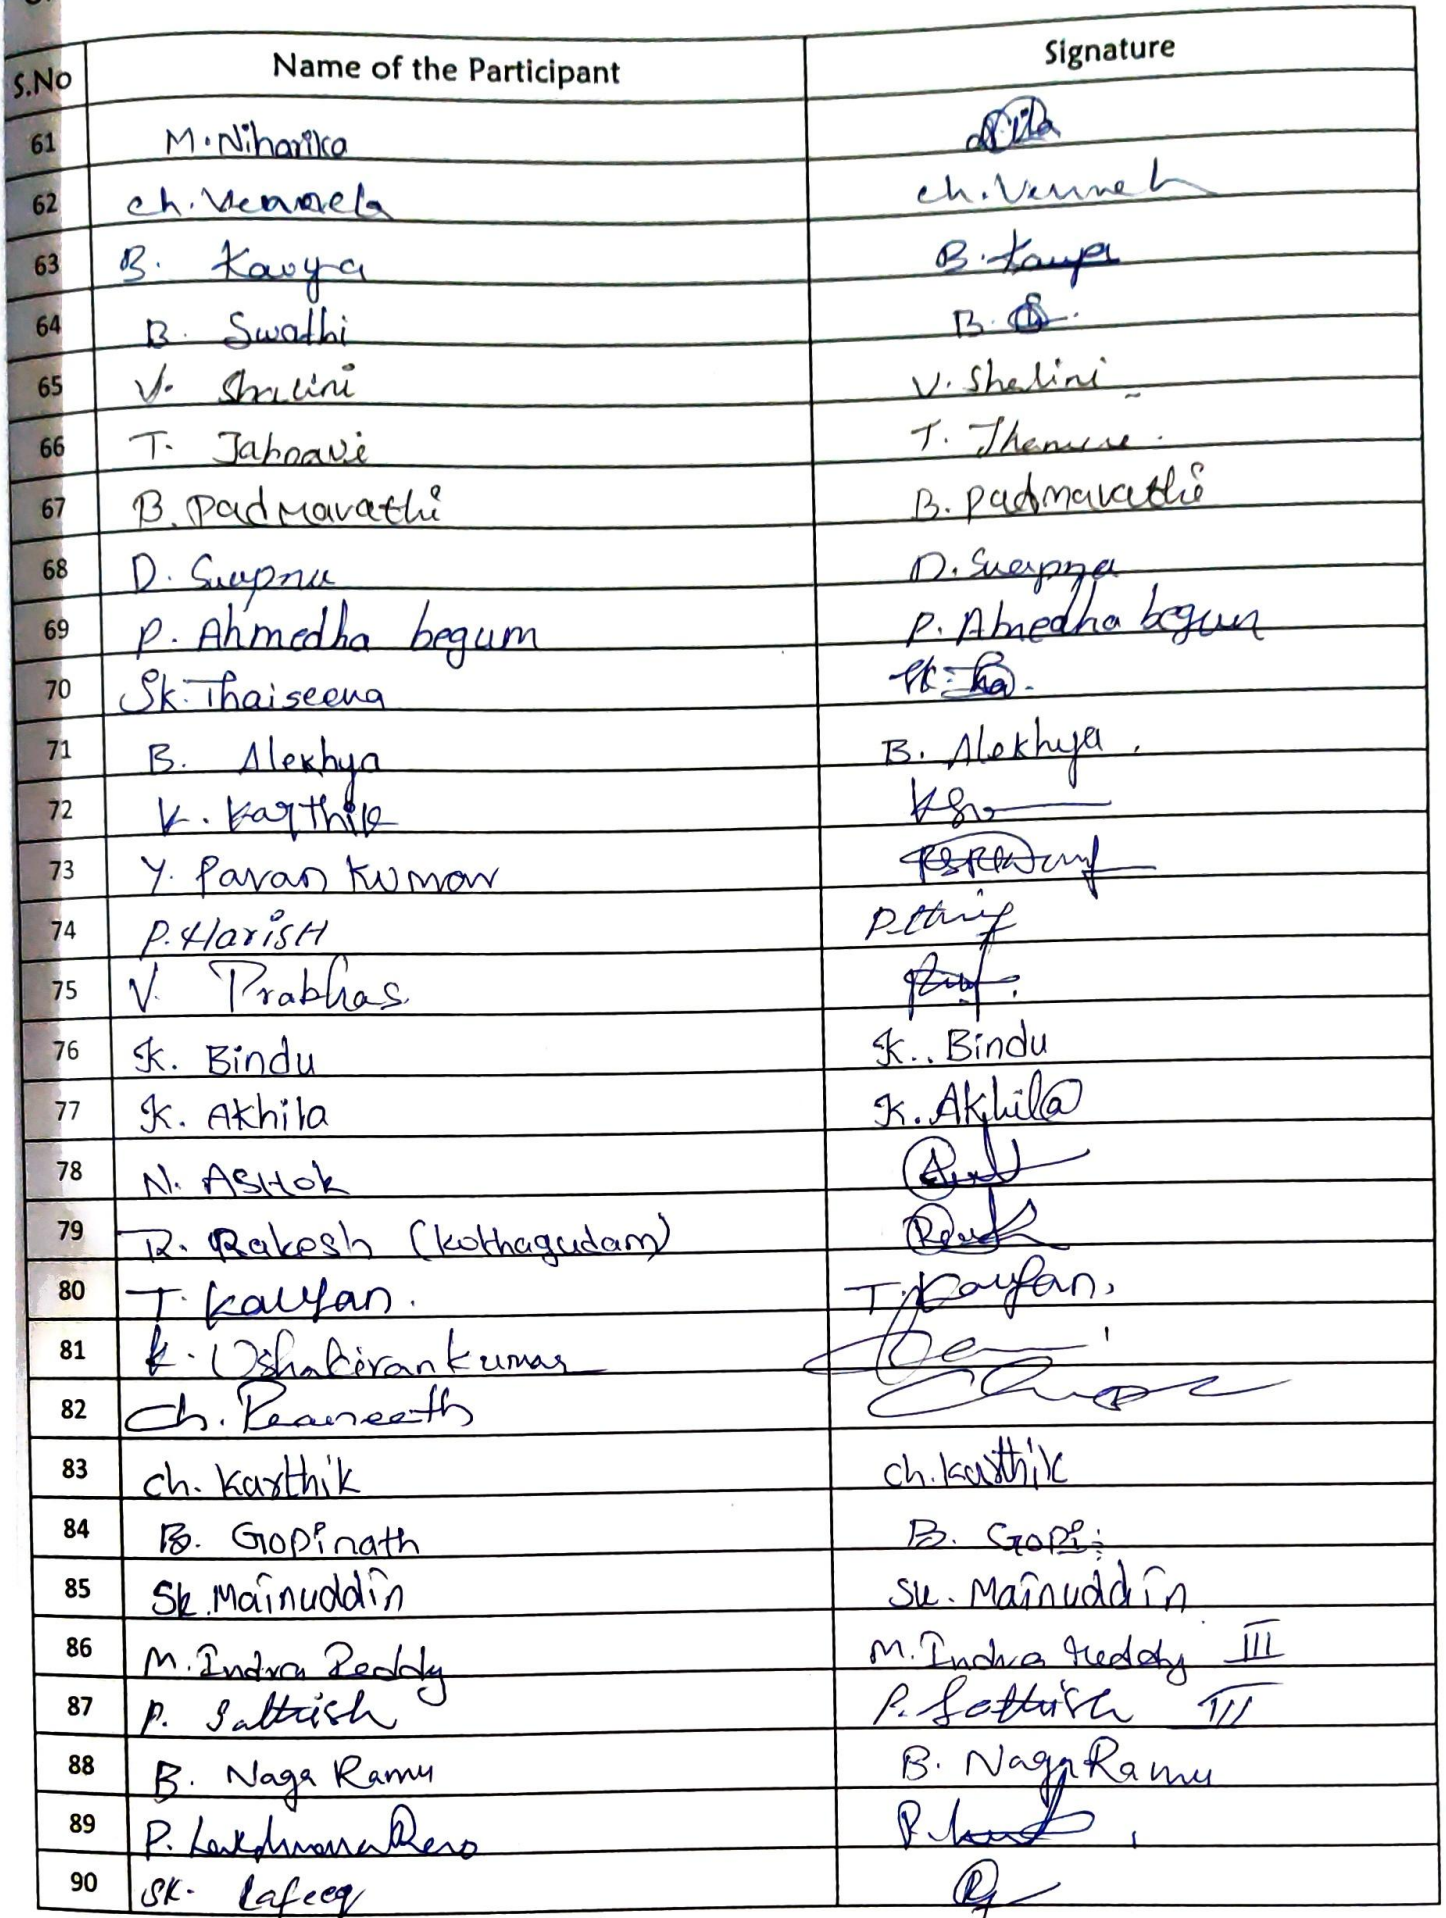 S.No Name of the Participant Signature
61 M. Niharika
62 ch. Vennela ch. Vennel
63 B. Kavya B. Kavya
64 B. Swathi B.
65 V. Shalini V. Shalini
66 T. Jahnavi T.
67 B. Padmavathi B. Padmavathi
68 D. Swapna D. Swapna
69 P. Ahmedha begum P. Ahmedha begum
70 Sk. Thaiseena Sk.
71 B. Alekhya B. Alekhya
72 K. Karthik
73 Y. Pavan Kumar
74 P. HarisH
75 V. Prabhas
76 K. Bindu K. Bindu
77 K. Akhila K. Akhila
78 N. ASHok
79 R. Rakesh (Kothagudam)
80 T. Kalyan. T. Kalyan.
81 K. Ushakiran Kumar
82 Ch. Praneeth
83 ch. Karthik ch. Karthik
84 B. Gopinath B. Gopi
85 Sk. Mainuddin Sk. Mainuddin
86 M. Indra Reddy M. Indra Reddy III
87 P. Sattish P. Sattish III
88 B. Naga Ramu B. Naga Ramu
89 P. Lakshmana Rao P.
90 SK. Rafeeq